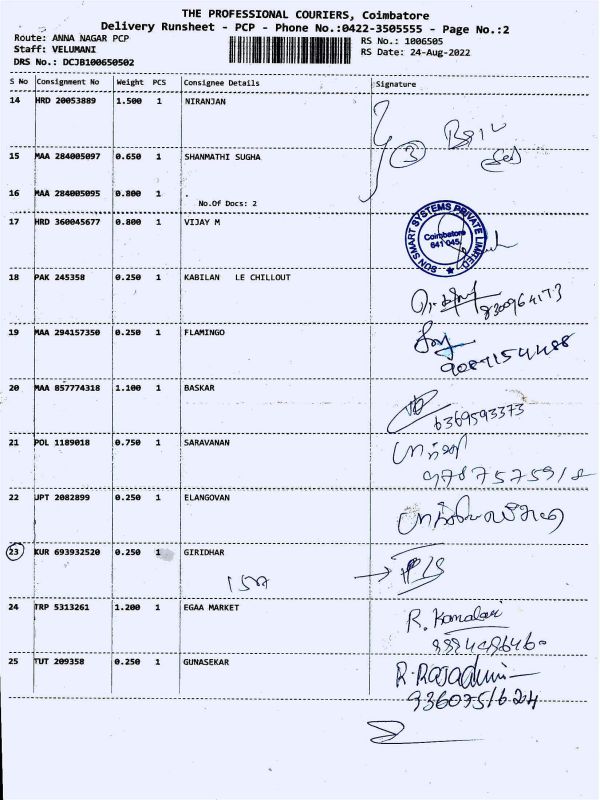 THE PROFESSIONAL COURIERS, Coimbatore
Delivery Runsheet - PCP - Phone No.:0422-3505555 - Page No.:2
Route: ANNA NAGAR PCP
RS No.: 1006505
Staff: VELUMANI
RS Date: 24-Aug-2022
DRS No.: DCJB100650502
S No Consignment No Weight PCS Consignee Details Signature
14 HRD 20053889 1.500 1 NIRANJAN
3
15 MAA 284005097 0.650 1 SHANMATHI SUGHA
16 MAA 284005095 0.800 1
No.Of Docs: 2
17 HRD 360045677 0.800 1 VIJAY M
SON SMART SYSTEMS PRIVATE LIMITED
Coimbatore
641 045
18 PAK 245358 0.250 1 KABILAN LE CHILLOUT
19 MAA 294157350 0.250 1 FLAMINGO
20 MAA 857774318 1.100 1 BASKAR
6369593373
21 POL 1189018 0.750 1 SARAVANAN
22 JPT 2082899 0.250 1 ELANGOVAN
23 KUR 693932520 0.250 1 GIRIDHAR
24 TRP 5313261 1.200 1 EGAA MARKET
R. Kamalavi
25 TUT 209358 0.250 1 GUNASEKAR